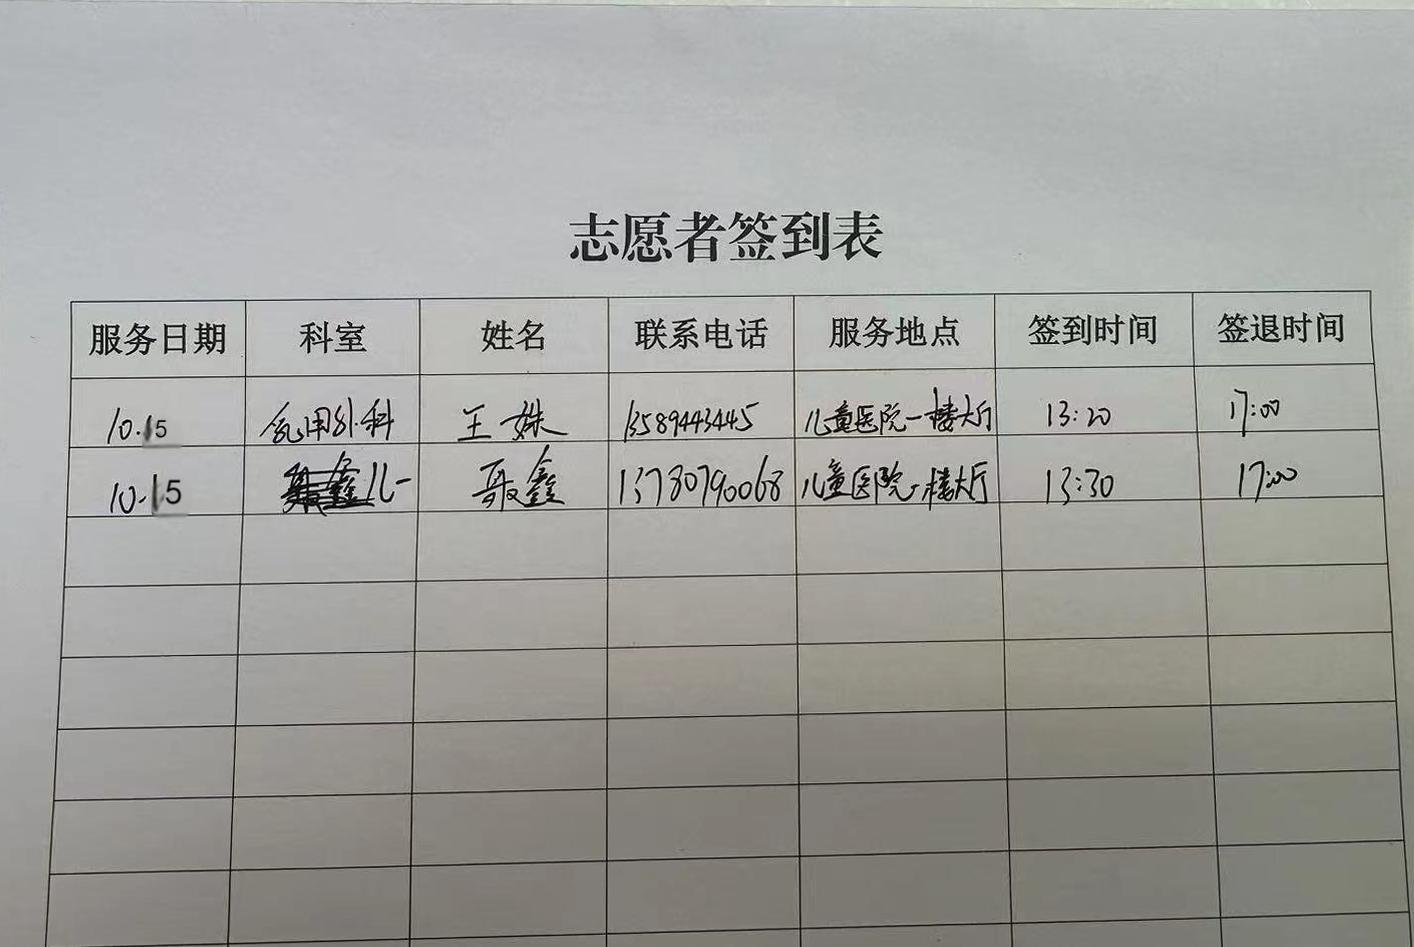 志愿者签到表
服务日期 科室 姓名 联系电话 服务地点 签到时间 签退时间
10.15 外科 王姝 13589443445 儿童医院一楼大厅 13:20 17:00
10.15 儿一 鑫 13780790068 儿童医院一楼大厅 13:30 17:00